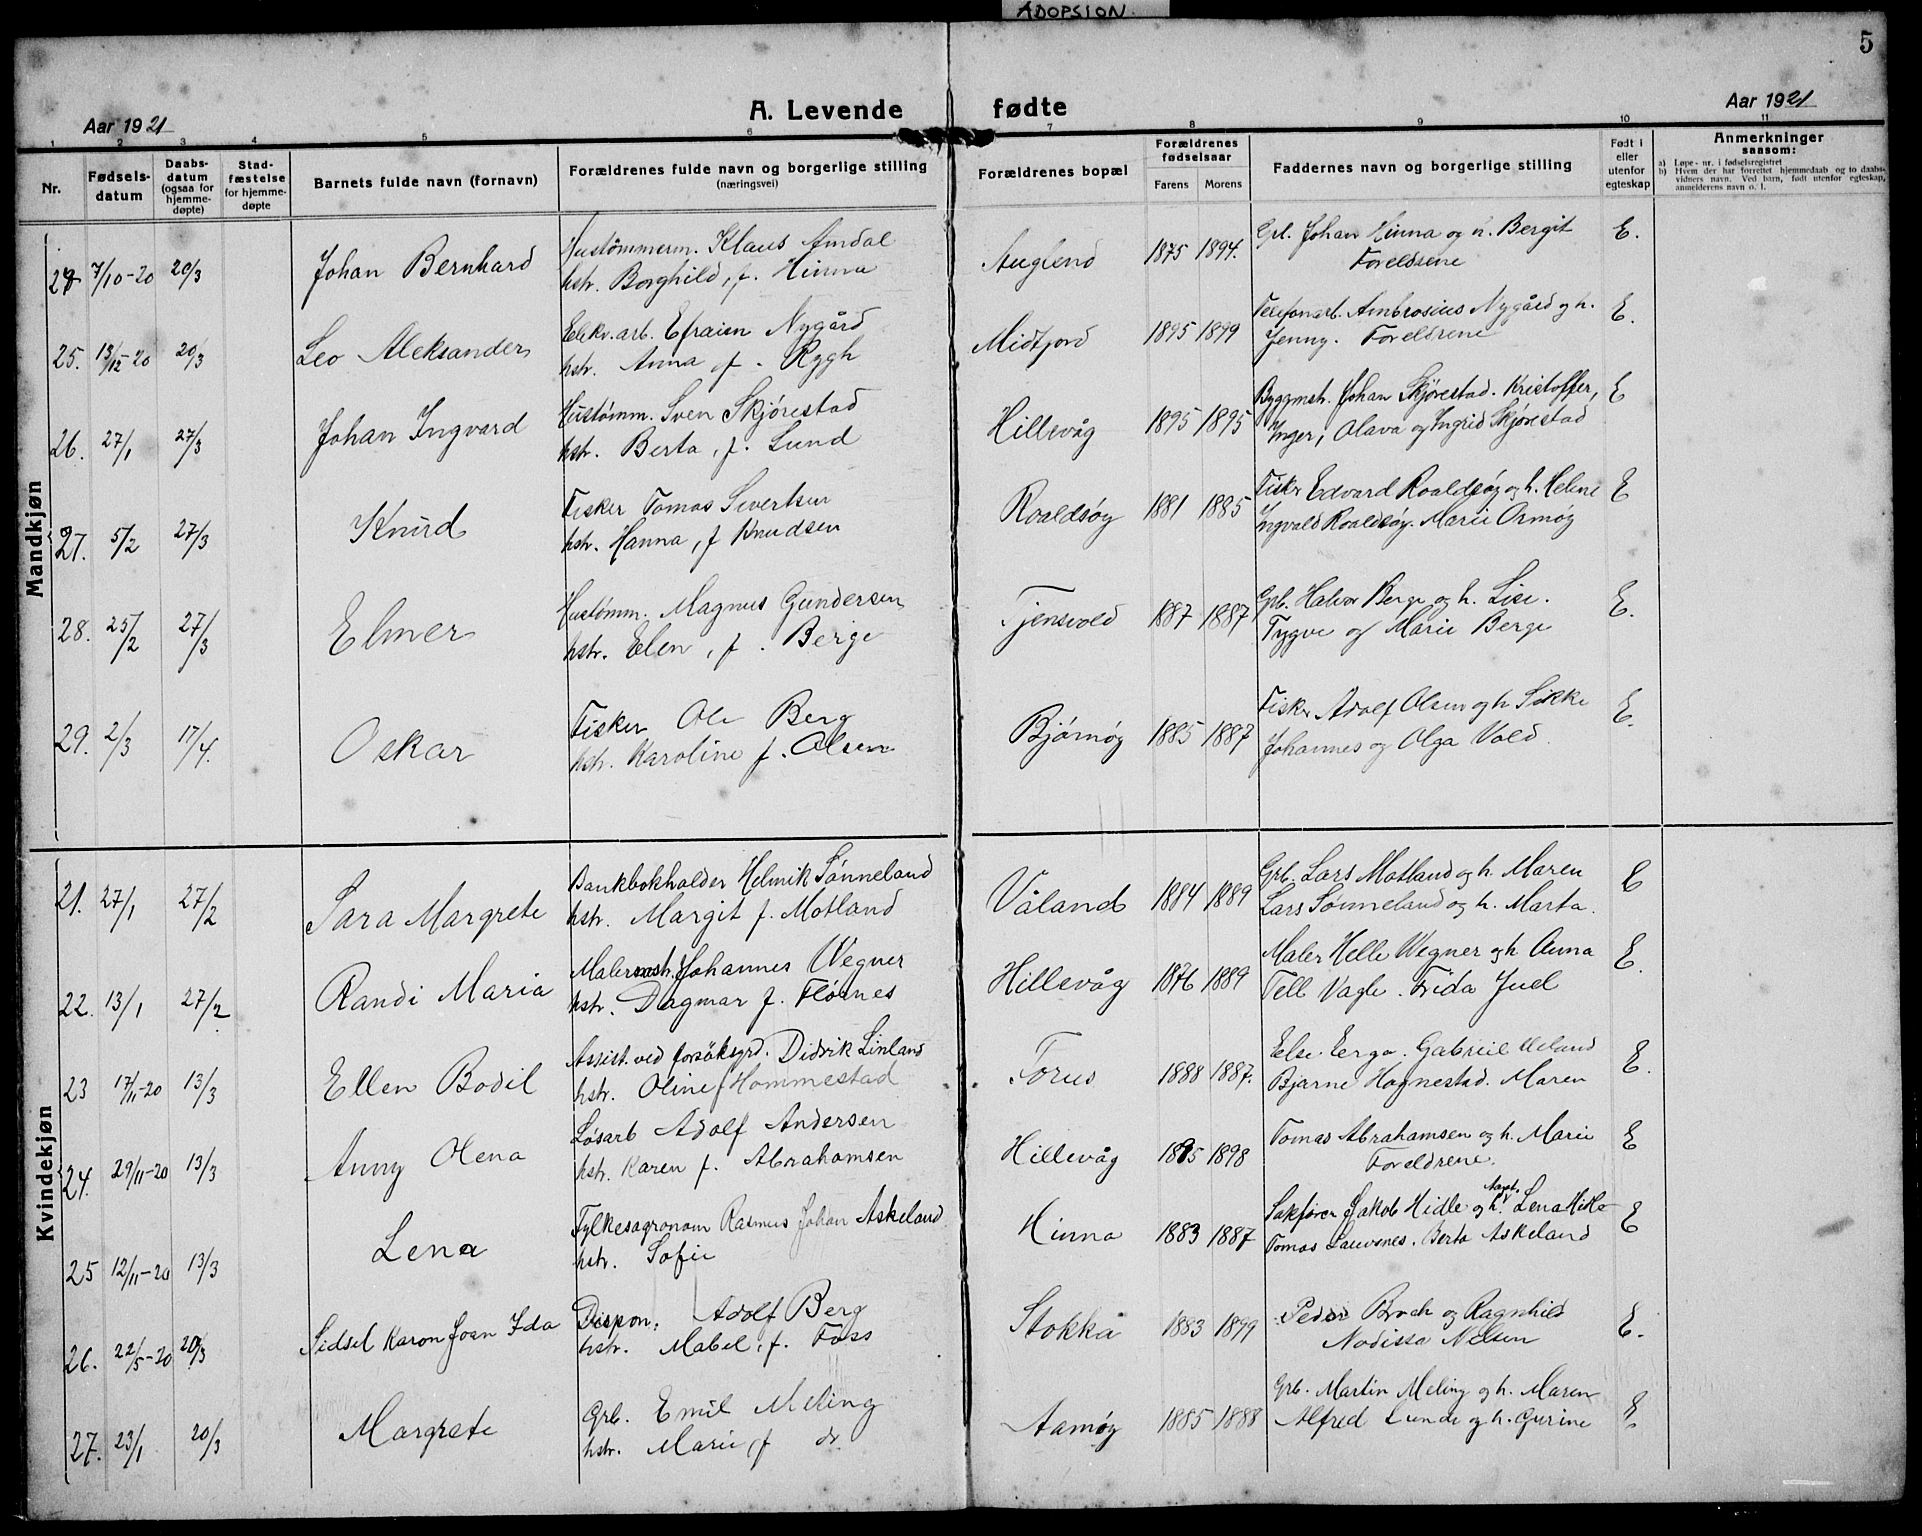 ADOPSION.
5
Aar 1921
A. Levende fødte
Aar 1921
1 2 3 4 5 6 7 8 9 10 11
Nr.
Fødsels-
datum
Daabs-
datum
(ogsaa for
hjemme-
døpte)
Stad-
fæstelse
for hjemme-
døpte
Barnets fulde navn (fornavn)
Forældrenes fulde navn og borgerlige stilling
(næringsvei)
Forældrenes bopæl
Forældrenes
fødselsaar
Farens Morens
Faddernes navn og borgerlige stilling
Født i
eller
utenfor
egteskap
Anmerkninger
saasom:
a) Løpe-nr. i fødselsregistret
b) Hvem der har forrettet hjemmedaab og to daabs-
vidners navn. Ved barn, født utenfor egteskap,
anmelderens navn o. l.
Mandkjøn
24 7/10-20 20/3 Johan Bernhard Hustømmerm. Klaus Amdal Auglend 1875 1894. Grb. Johan Hinna og h. Bergit E.
hstr. Borghild, f. Hinna Foreldrene
25. 13/12-20 20/3 Leo Aleksander Elekv.arb. Efraim Nygård Midtjord 1895 1899 Telefonarb. Ambrosius Nygård og h. E.
hstr. Anna f. Rygh Jenny. Foreldrene
26. 27/1 27/3 Johan Ingvard Hustømm. Sven Skjørestad Hillevåg 1895 1895 Byggmstr. Johan Skjørestad. Kristoffer, E
hstr. Berta, f. Lund Inger, Olava og Ingrid Skjørestad
27. 5/2 27/3 Knud Fisker Tomas Sivertsen Roaldsøy 1881 1885 Fisker Edvard Roaldsøy og h. Helene E
hstr. Hanna, f Knudsen Ingvald Roaldsøy. Marie Ormøy
28. 25/2 27/3 Elmer Hustømm. Magnus Gundersen Tjensvold 1887 1887 Grb. Halvor Berge og h. Lise. E.
hstr. Elen, f. Berge Tygve og Marie Berge
29. 2/3 17/4. Oskar Fisker Ole Berg Bjørnøy 1885 1887 Fisker Adolf Olsen og h Sikke E.
hstr. Karoline f. Olsen Johannes og Olga Vold.
Kvindekjøn
21. 27/1 27/2 Sara Margrete Bankbokholder Helmik Sønneland Våland 1884 1889 Grb. Lars Motland og h. Maren E
hstr. Margit f. Motland Lars Sønneland og h. Marta.
22. 13/1 27/2 Randi Maria Malermstr. Johannes Wegner Hillevåg 1876 1889 Maler Helle Wegner og h Anna E.
hstr. Dagmar f. Fløsnes Tell Vagle. Frida Juel
23 17/11-20 13/3 Ellen Bodil Assist. ved forsøksgrd. Didrik Linland Forus 1888 1887. Else Eerga. Gabriel Ueland E.
hstr. Oline f Hommestad Bjarne Hognestad. Maren
24. 29/11-20 13/3 Anny Olena Løsarb Adolf Andersen Hillevåg 1895 1898 Tomas Abrahamsen og h. Marie E
hstr. Karen f. Abrahamsen Foreldrene.
25 12/11-20 13/3 Lena Fylkesagronom Rasmus Johan Askeland Hinna 1883 1887 Sakfører Jakob Hidle og h. Lena Hidle E
hstr. Sofie Tomas Lauvsnes. Berta Askeland
26. 22/5-20 20/3 Sidsel Karon Joan Ida Dispon. Adolf Berg Stokka 1883 1899 Peder Broch og Ragnhild E.
hstr. Mabel, f. Foss Nodissa Nilsen
27. 23/1 20/3 Margrete Grb. Emil Meling Aamøy 1885 1888 Grb. Martin Meling og h. Maren E.
hstr. Marie, f do. Alfred Lunde og h. Gurine